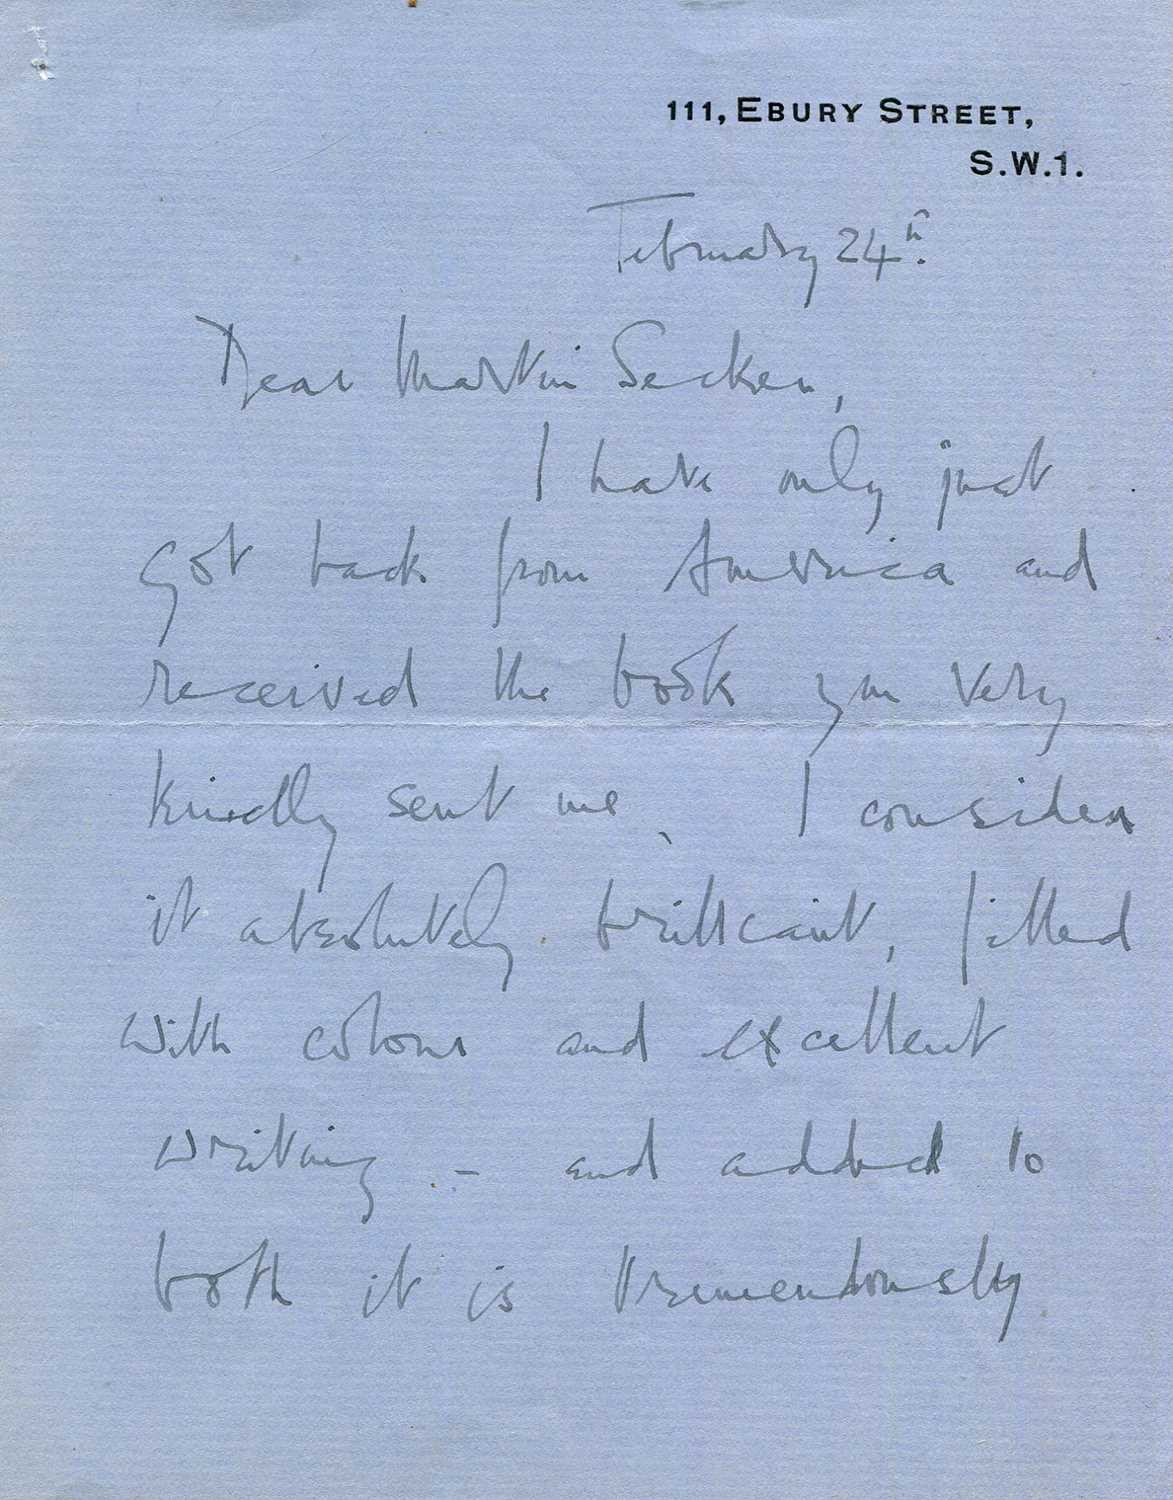 111, EBURY STREET,
S.W.1.
February 24th.
Dear Martin Secker,
I have only just
got back from America and
received the book you very
kindly sent me, I consider
it absolutely brilliant, filled
with colour and excellent
writing - and added to
both it is tremendously